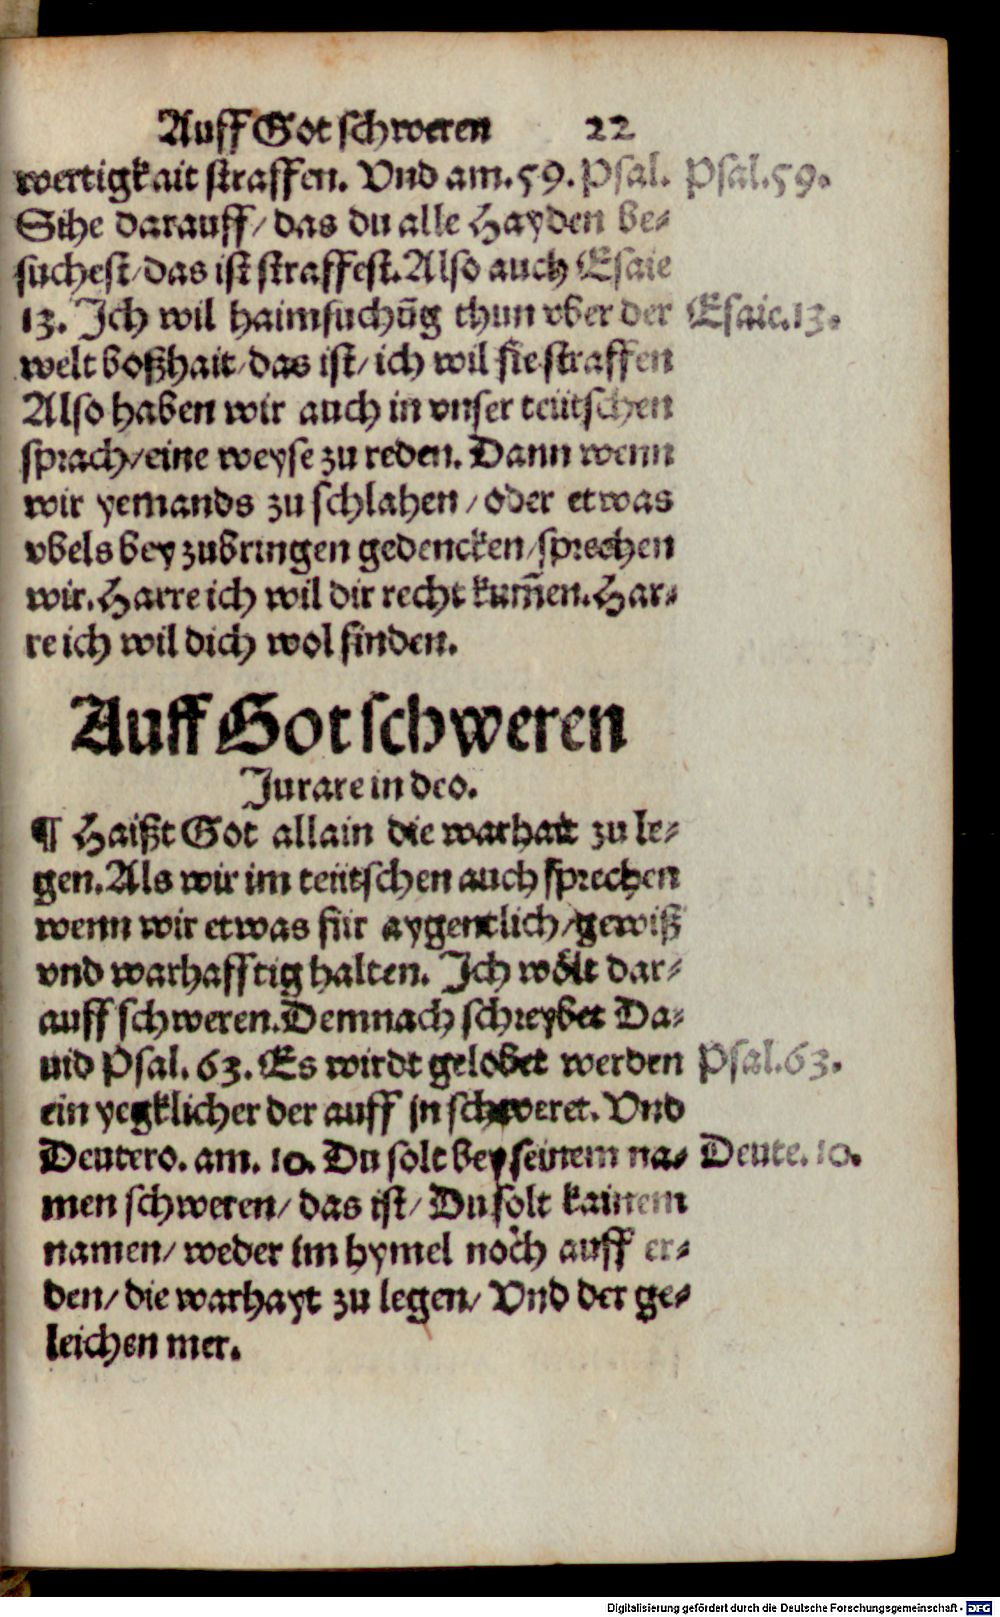 Auff Got schweren 22
wertigkait straffen. Vnd am. 59. Psal. Psal. 59.
Sihe darauff / das du alle Hayden be⸗
suchest / das ist straffest. Also auch Esaie
13. Ich wil haimsuchūg thun vber der Esaie. 13.
welt boßhait / das ist / ich wil sie straffen
Also haben wir auch in vnser teütschen
sprach / eine weyse zu reden. Dann wenn
wir yemands zu schlahen / oder etwas
vbels bey zubringen gedencken / sprechen
wir. Harre ich wil dir recht kum̄en. Har⸗
re ich wil dich wol finden.
Auff Got schweren
Jurare in deo.
¶ Haißt Got allain die warhait zu le⸗
gen. Als wir im teütschen auch sprechen
wenn wir etwas für aygentlich / gewiß
vnd warhafftig halten. Ich wölt dar⸗
auff schweren. Demnach schreybet Da⸗
uid Psal. 63. Es wirdt gelobet werden Psal. 63.
ein yegklicher der auff jn schweret. Vnd
Deutero. am. 10. Du solt bey seinem na⸗ Deute. 10.
men schweren / das ist / Du solt kainem
namen / weder im hymel noch auff er⸗
den / die warhayt zu legen / Vnd der ge⸗
leichen mer.
Digitalisierung gefördert durch die Deutsche Forschungsgemeinschaft - DFG